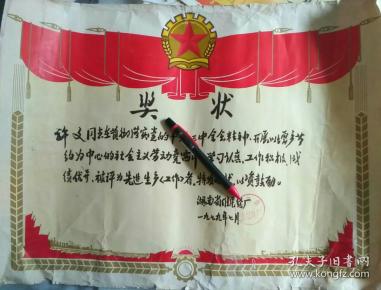 奖状
许文同志在贯彻党的三中全会精神,开展以增产节
约为中心的社会主义劳动竞赛中,学习认真,工作积极,成
绩优异,被评为先进生产(工作)者,特发状,以资鼓励。
湖南省
一九七九年 月
孔夫子旧书网